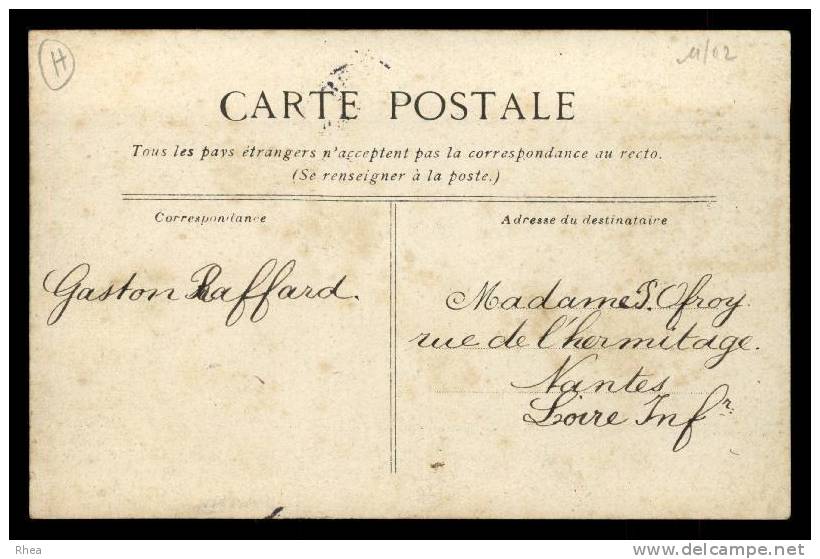 H
11/02
CARTE POSTALE
Tous les pays étrangers n'acceptent pas la correspondance au recto.
(Se renseigner à la poste.)
Correspondance
Adresse du destinataire
Gaston Raffard.
Madame P. Ofroy
rue de l'hermitage.
Nantes
Loire Infr.
Rhea
www.delcampe.net